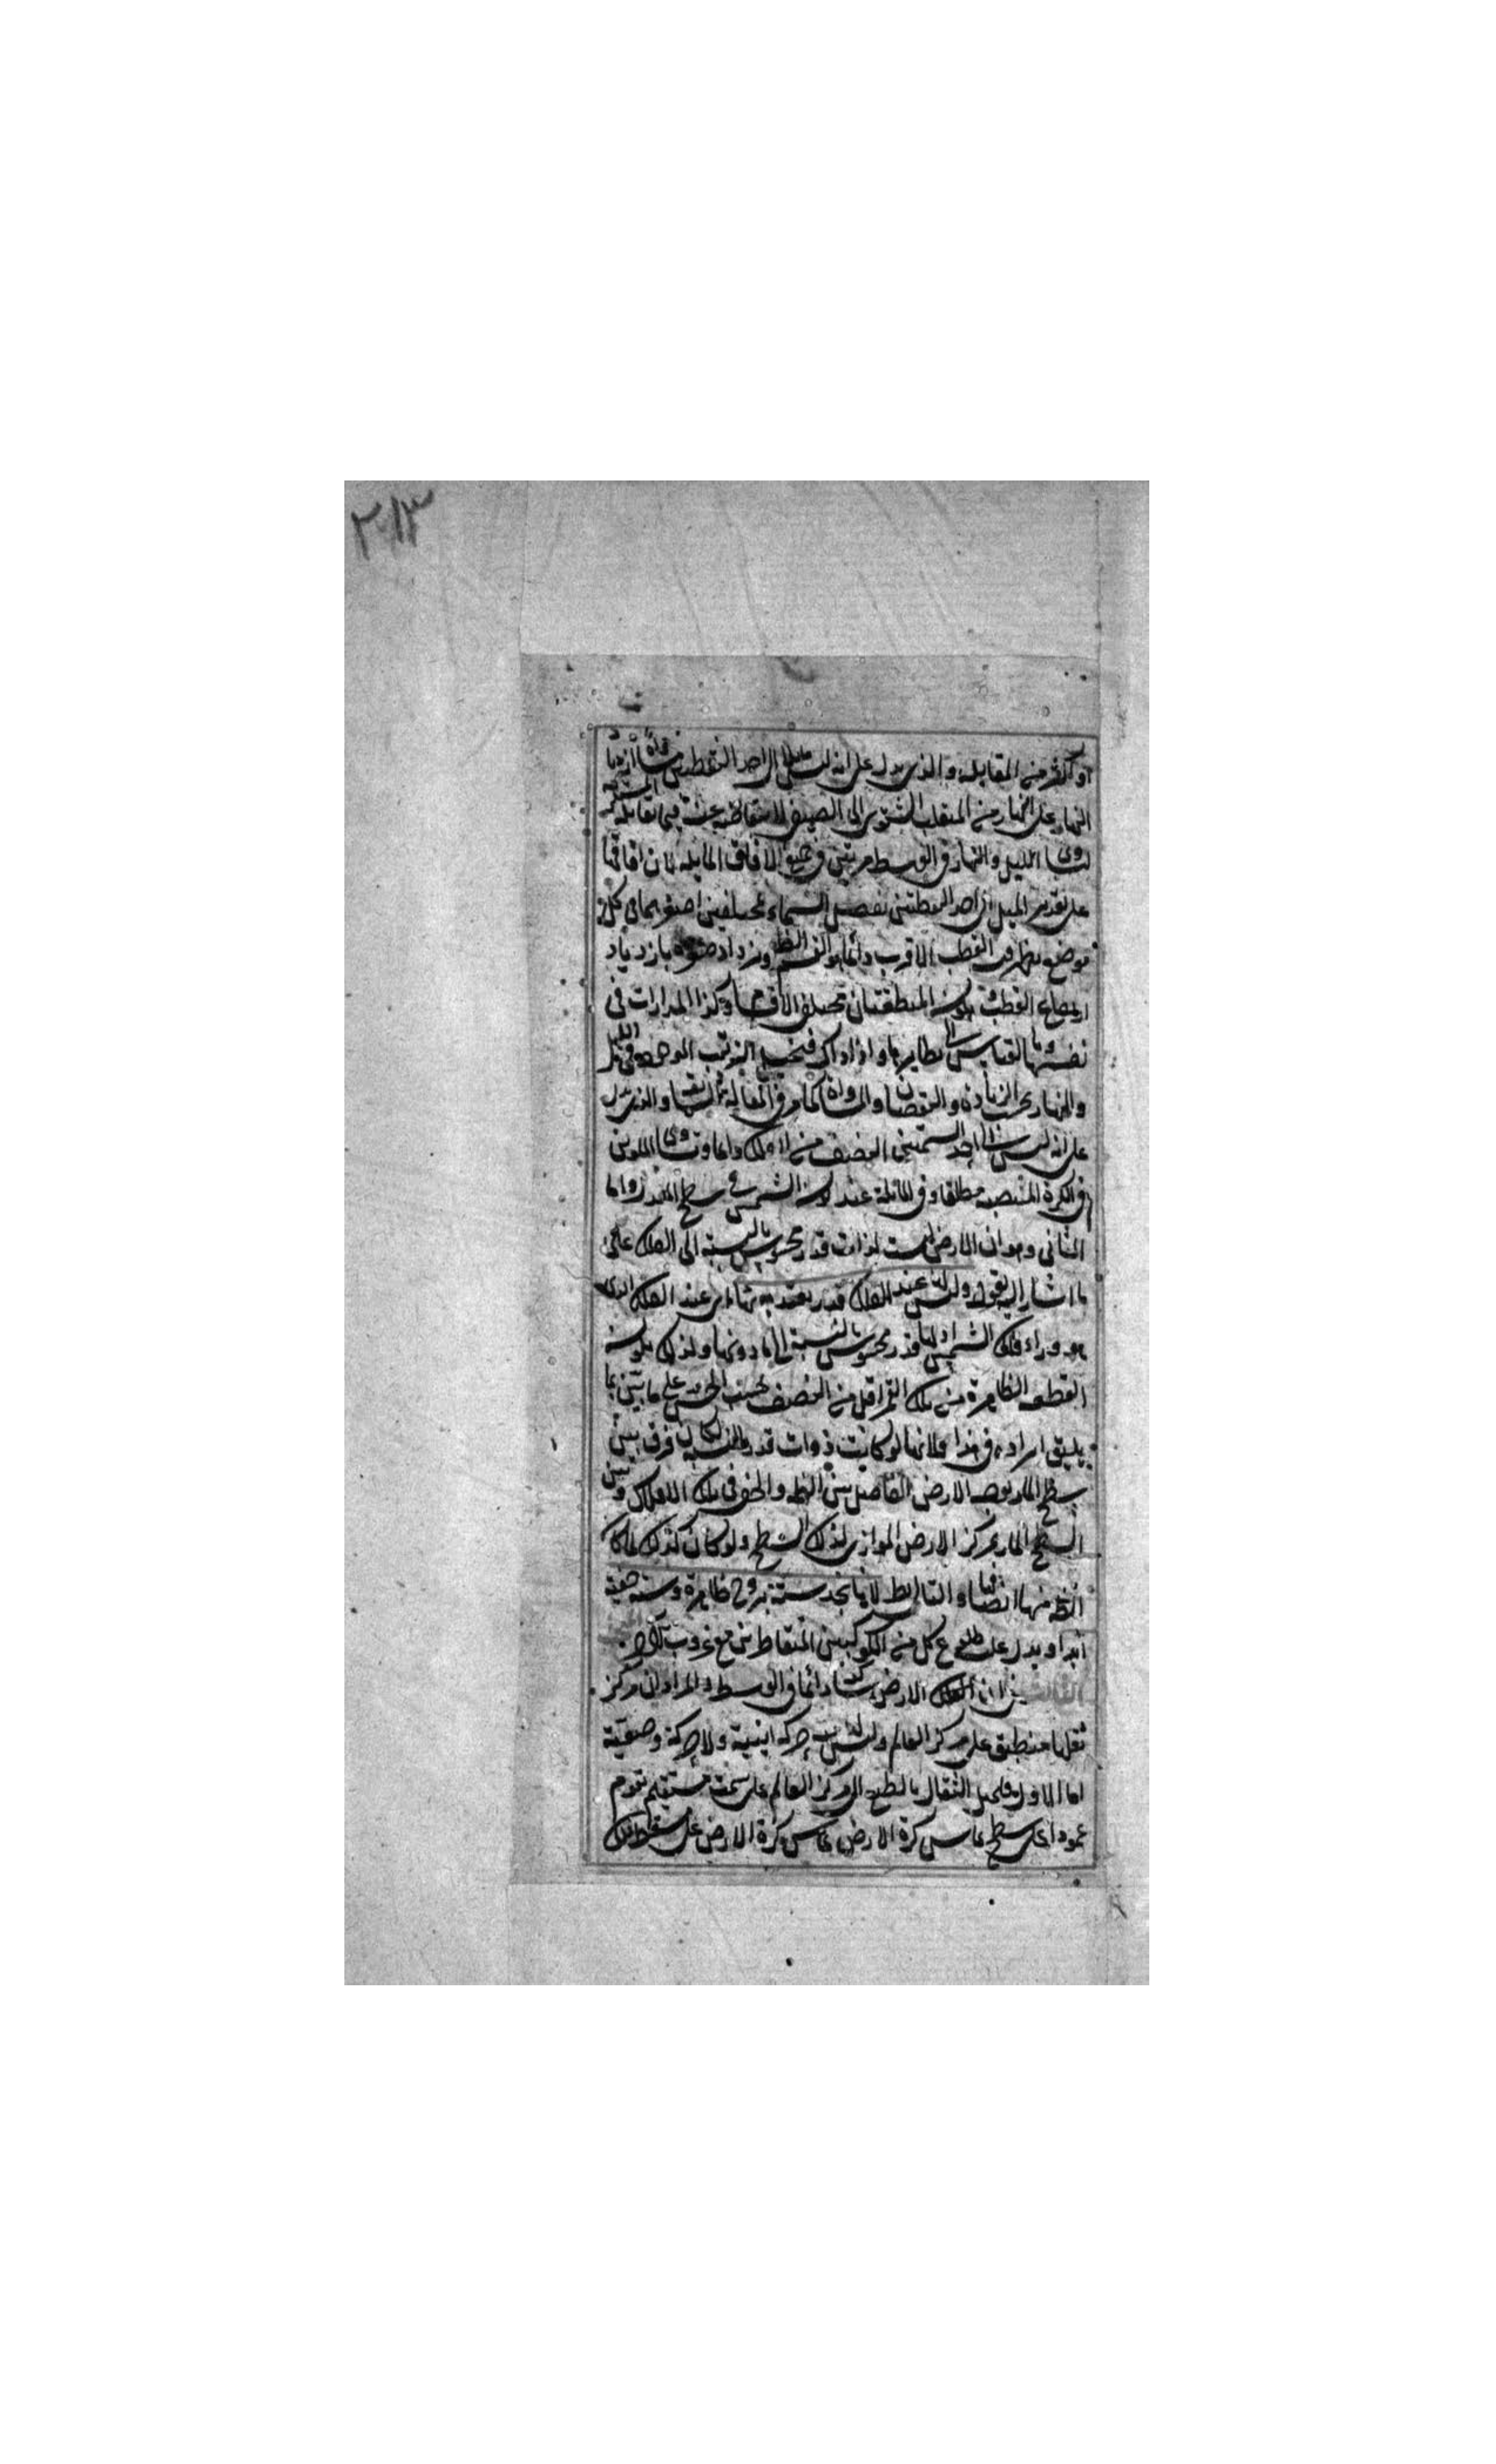 ٢١٣
او اكثر من المقابلة والذى يدل على انه ليس مايلا الى احد القطبين مساواة ازدياد
النهار على النهار من المنقلب الشتوى الى الصيفى لانتقاضه بحيث فيما تقابله
تساوى الليل والنهار فى الوسط مرتين فى جميع الافاق المايلة لان افاقها
على تقدير الميل الى احد القطبين تفصل السماء بمختلفين اصغرهما فى كل
موضع يظهر فيه القطب الاقرب دائما هو القسم الظ ويزداد صغره بازدياد
ارتفاع القطب فتكون المنطقتان مختلفى الاقسام وكذا المدارات فى
نفسها وبالقياس الى نظايرها واذ ذاك فيختل الترتيب الموجود فى الليل
والنهار بحسب الزيادة والنقصان والمساواة كما مر فى المقالة والذى يدل
على انه ليس الى احد السمتين المنصف من الفلك دائما وتساوى الملوين
فى الكرة المنتصبة مطلقا وفى المائلة عند كون الشمس فى سطح المعدل واما
الثانى وهو ان الارض ليست لذات قدر محسوس بالنسبة الى الفلك على
ما اشار اليه بقوله وليس عند الفلك قدر يعتد به اى عند الفلك الذى
هو وراء فلك الشمس اذ لها قدر محسوس بالنسبة الى ما دونها ولذلك يكون
القطعة الظاهرة من فلك القمر اقل من النصف بحسب الحس على ما تبين بما
يليق ايراده فى هذا فلانها لو كانت ذوات قدر بالنسبة لكان فرق بين
سطح المار بوجه الارض الفاصل بين الظ والخفى فى تلك الافلاك وبين
السطح المار بمركز الارض الموازى لذلك السطح ولو كان كذلك لما كان
الظ منها انصافا والتالى بط لانا نجد ستة بروج ظاهرة وستة خفية
ابدا ويدل عليه طلوع كل من الكوكبين المتقاطرين مع غروب الاخر
الثالث ان الارض ساكنة دائما فى الوسط والمراد ان مركز
ثقلها منطبق على مركز العالم وليس لها حركة اينية ولا حركة وضعية
اما الاول فلميل الثقال بالطبع الى مركز العالم على سمت مستقيم تقوم
عمودا على سطح يماس كرة الارض يماس كرة الارض على مسقط